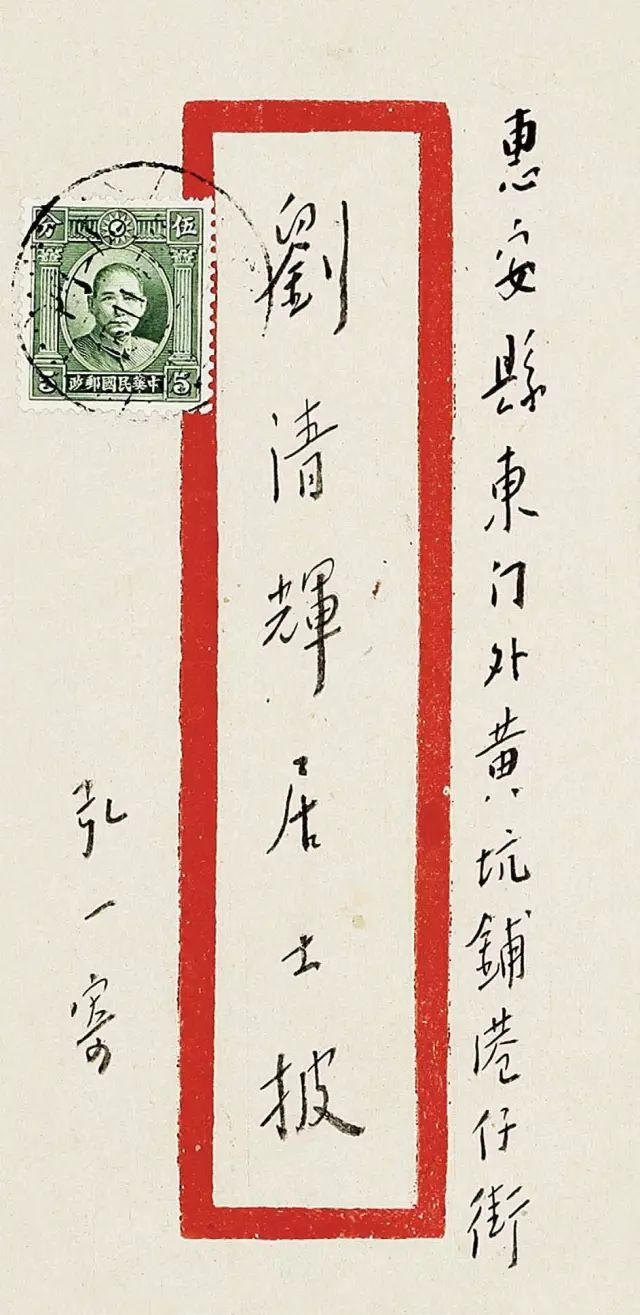 惠安縣東门外黄坑鋪港仔街
劉清輝居士披
弘一寄
伍 分
中華民國郵政
5 5